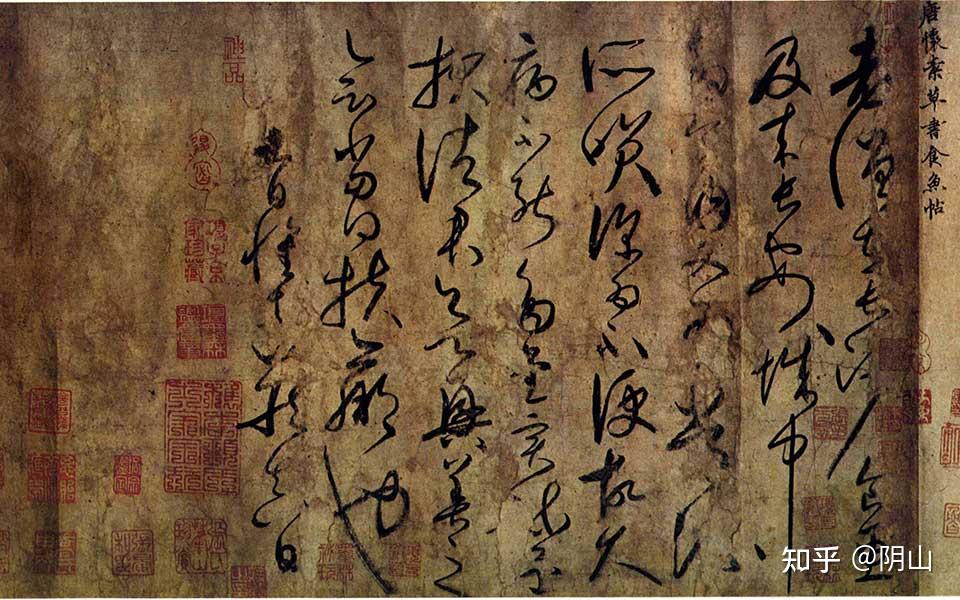 唐懷素草書食魚帖
老僧在長沙食魚
及來長安城中
多食肉又為常流
所笑深為不便故久
病不能多書實疏還
報諸君欲興善之
會當得扶羸也
九日懷素藏真白
項子京家珍藏
知乎 @阴山